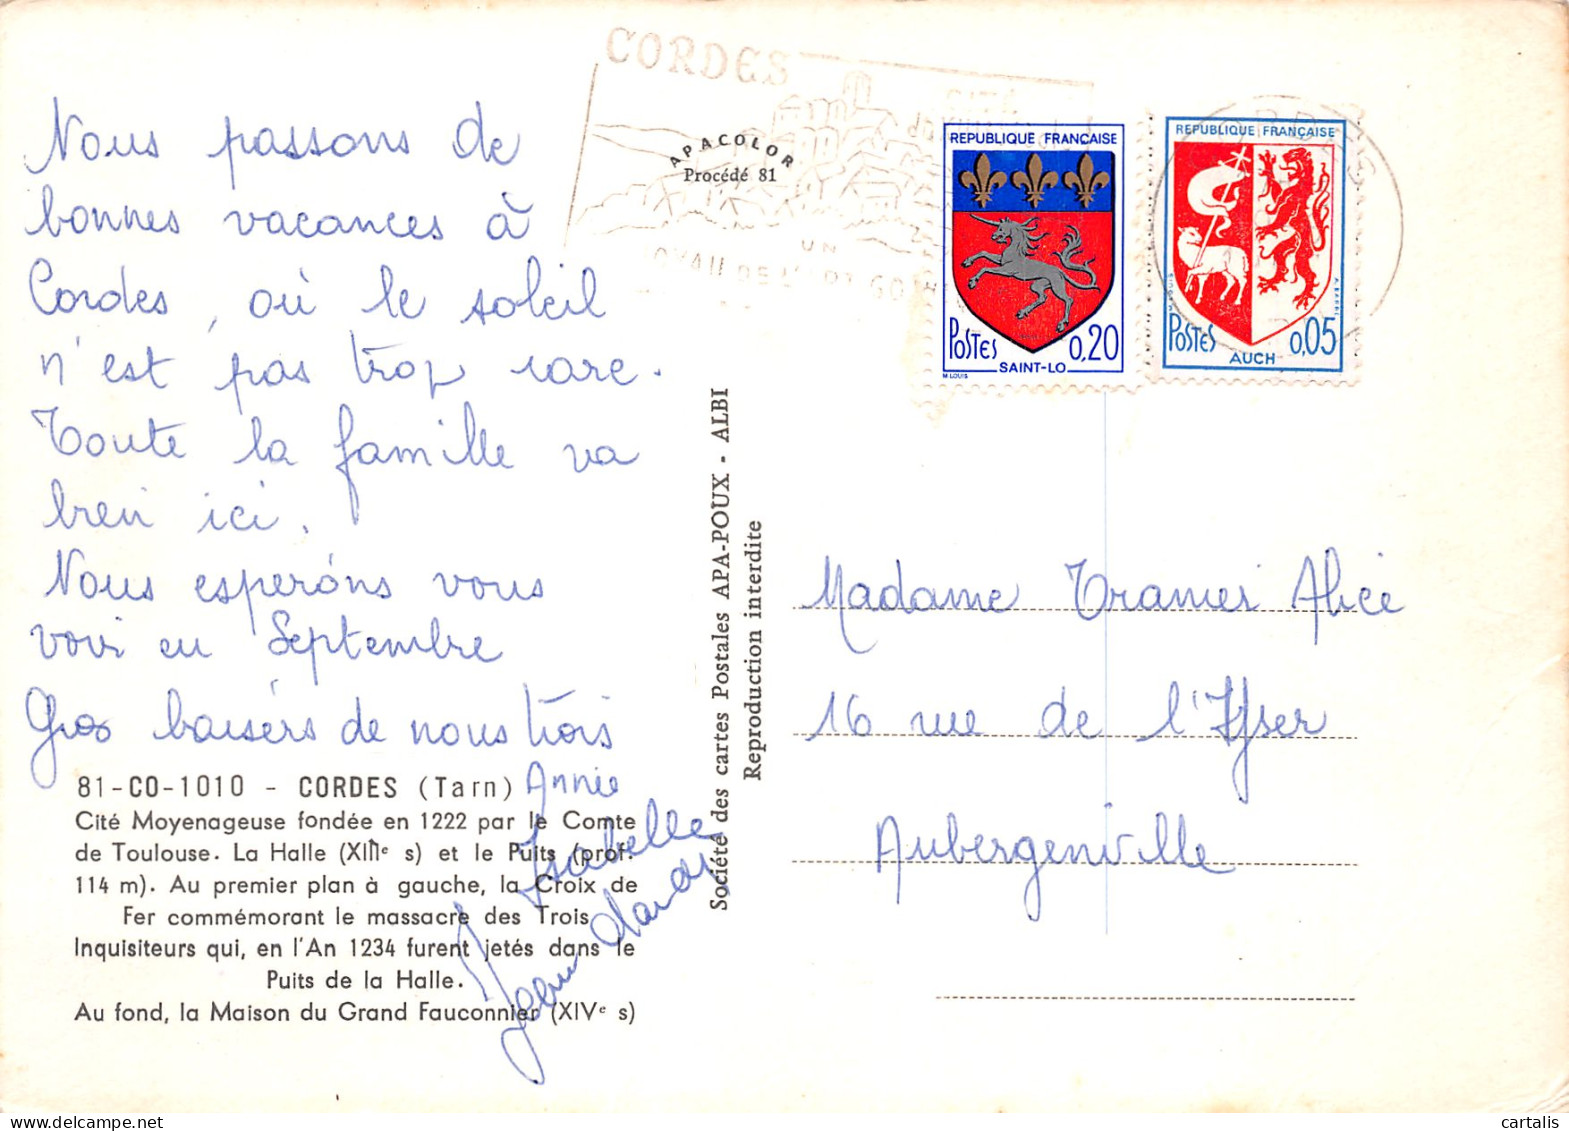 CORDES
CITÉ
APACOLOR
Procédé 81
UN
REPUBLIQUE FRANÇAISE
POSTES 0,20
SAINT-LO
M. LOUIS
REPUBLIQUE FRANÇAISE
POSTES 0,05
AUCH
Nous passons de
bonnes vacances à
Cordes, où le soleil
n'est pas trop rare.
Toute la famille va
bien ici.
Nous espérons vous
voir en Septembre
Gros baisers de nous trois
Annie
Isabelle
Jean
81-CO-1010 - CORDES (Tarn)
Cité Moyenageuse fondée en 1222 par le Comte
de Toulouse. La Halle (XIIIe s) et le Puits (prof.
114 m). Au premier plan à gauche, la Croix de
Fer commémorant le massacre des Trois
Inquisiteurs qui, en l'An 1234 furent jetés dans le
Puits de la Halle.
Au fond, la Maison du Grand Fauconnier (XIVe s)
Société des cartes Postales APA-POUX - ALBI
Reproduction interdite
Madame Tramier Alice
16 rue de l'Yser
Aubergenville
cartalis